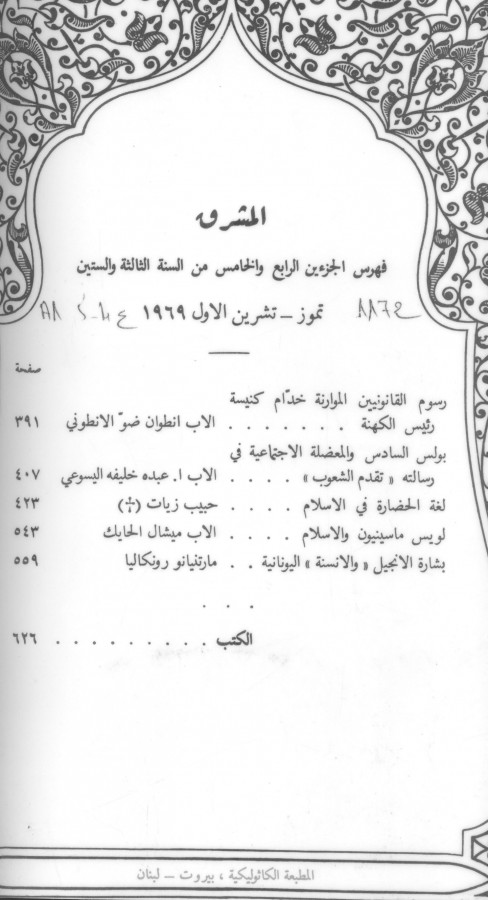 المشرق
فهرس الجزءين الرابع والخامس من السنة الثالثة والستين
تموز – تشرين الاول ١٩٦٩
صفحة
رسوم القانونيين الموارنة خدّام كنيسة
رئيس الكهنة . . . . . . . الاب انطوان ضوّ الانطوني ٣٩١
بولس السادس والمعضلة الاجتماعية في
رسالته « تقدم الشعوب » . . . . الاب ا. عبده خليفه اليسوعي ٤٠٧
لغة الحضارة في الاسلام . . . . حبيب زيات (†) ٤٢٣
لويس ماسينيون والاسلام . . . . الاب ميشال الحايك ٥٤٣
بشارة الانجيل « والانسنة » اليونانية . . مارتنيانو رونكاليا ٥٥٩
. . .
الكتب . . . . . . . . . ٦٢٦
المطبعة الكاثوليكية ، بيروت – لبنان